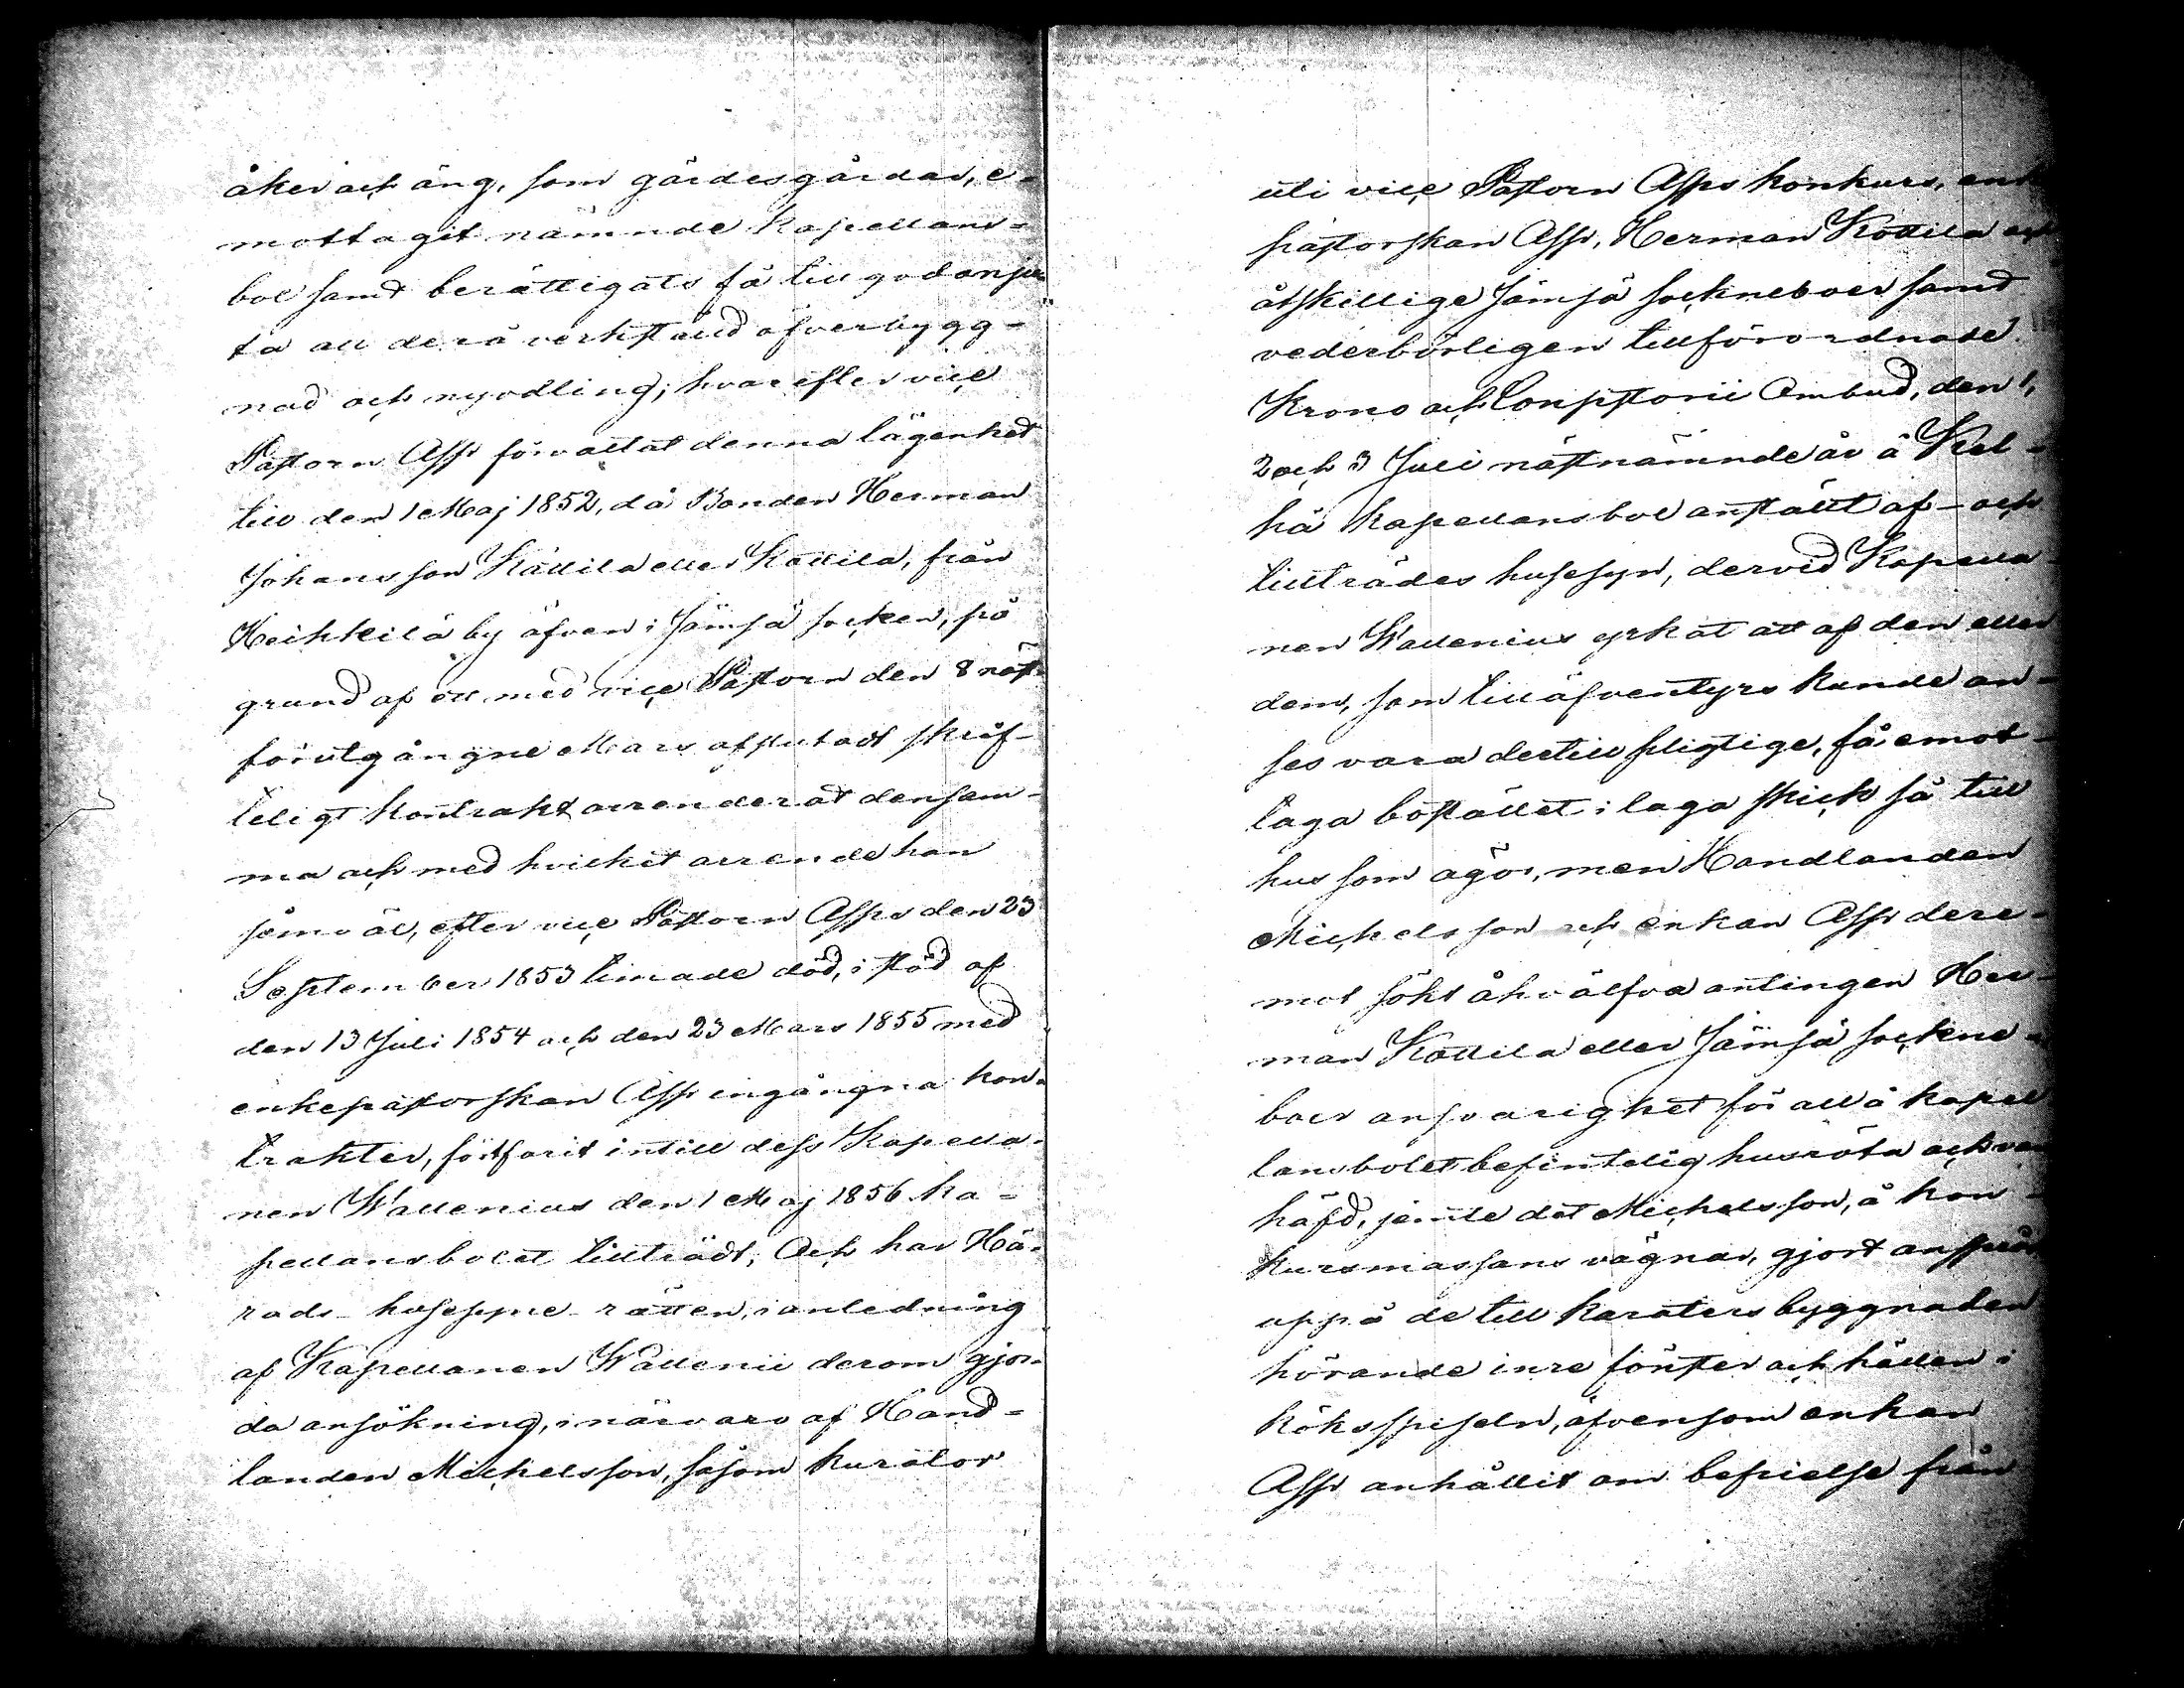 åker och äng, som gärdesgårdar, e-
mottagit nämnde kapellans-
bol samt berättigats få till godo nju-
ta all derå verkställd öfverbygg-
nad och nyodling; hvarefter vice
Pastorn Asp förvaltat denna lägenhet
till den 1 Maj 1852, då Bonden Herman
Johansson Kättilä eller Kottila, från
Heikkilä by äfven i Jämsä socken, på
grund af ett med vice Pastorn den 8 näst-
förutgångne Mars afslutadt skrif-
teligt kontrakt arrenderat densam-
ma och med hvilket arrende han
jemväl, efter vice Pastorn Asps den 23
September 1853 timade död, i stöd af
den 13 Juli 1854 och den 23 Mars 1855 med
enkepastorskan Asp ingångna kon-
trakter, fortfarit intill dess Kapella-
nen Wallenius den 1 Maj 1856 ka-
pellansbolet tillträdt; Och har Hä-
rads- husesyne- rätten, i anledning
af Kapellanen Wallenii derom gjor-
da ansökning, i närvaro af Hand-
landen Michelsson, såsom kurator
uti vice Pastorn Asps konkurs, enke-
pastorskan Asp, Herman Kottila och
åtskillige Jämsä sockneboer samt
vederbörligen tillförordnade
Krono och Consistorii Ombud, den 1,
2 och 3 Juli nästnämnde år å Kel-
hä kapellansbol anställt af- och
tillträdes husesyn, dervid Kapella-
nen Wallenius yrkat att af den eller
dem, som till äfventyrs kunde an-
ses vara dertill pligtige, få emot-
taga bostället i laga skick så till
hus som ägor, men Handlanden
Michelsson och enkan Asp dere-
mot sökt åhvälfva antingen Her-
man Kottila eller Jämsä sockne-
boer ansvarighet för all å kapel-
lansbolet befintelig husröta och van-
häfd, jemte det Michelsson, å kon-
kursmassans vägnar, gjort anspråk
uppå de till karaktersbyggnaden
hörande inre fönster och hällen i
köksspiseln, äfvensom enkan
Asp anhållit om befrielse från